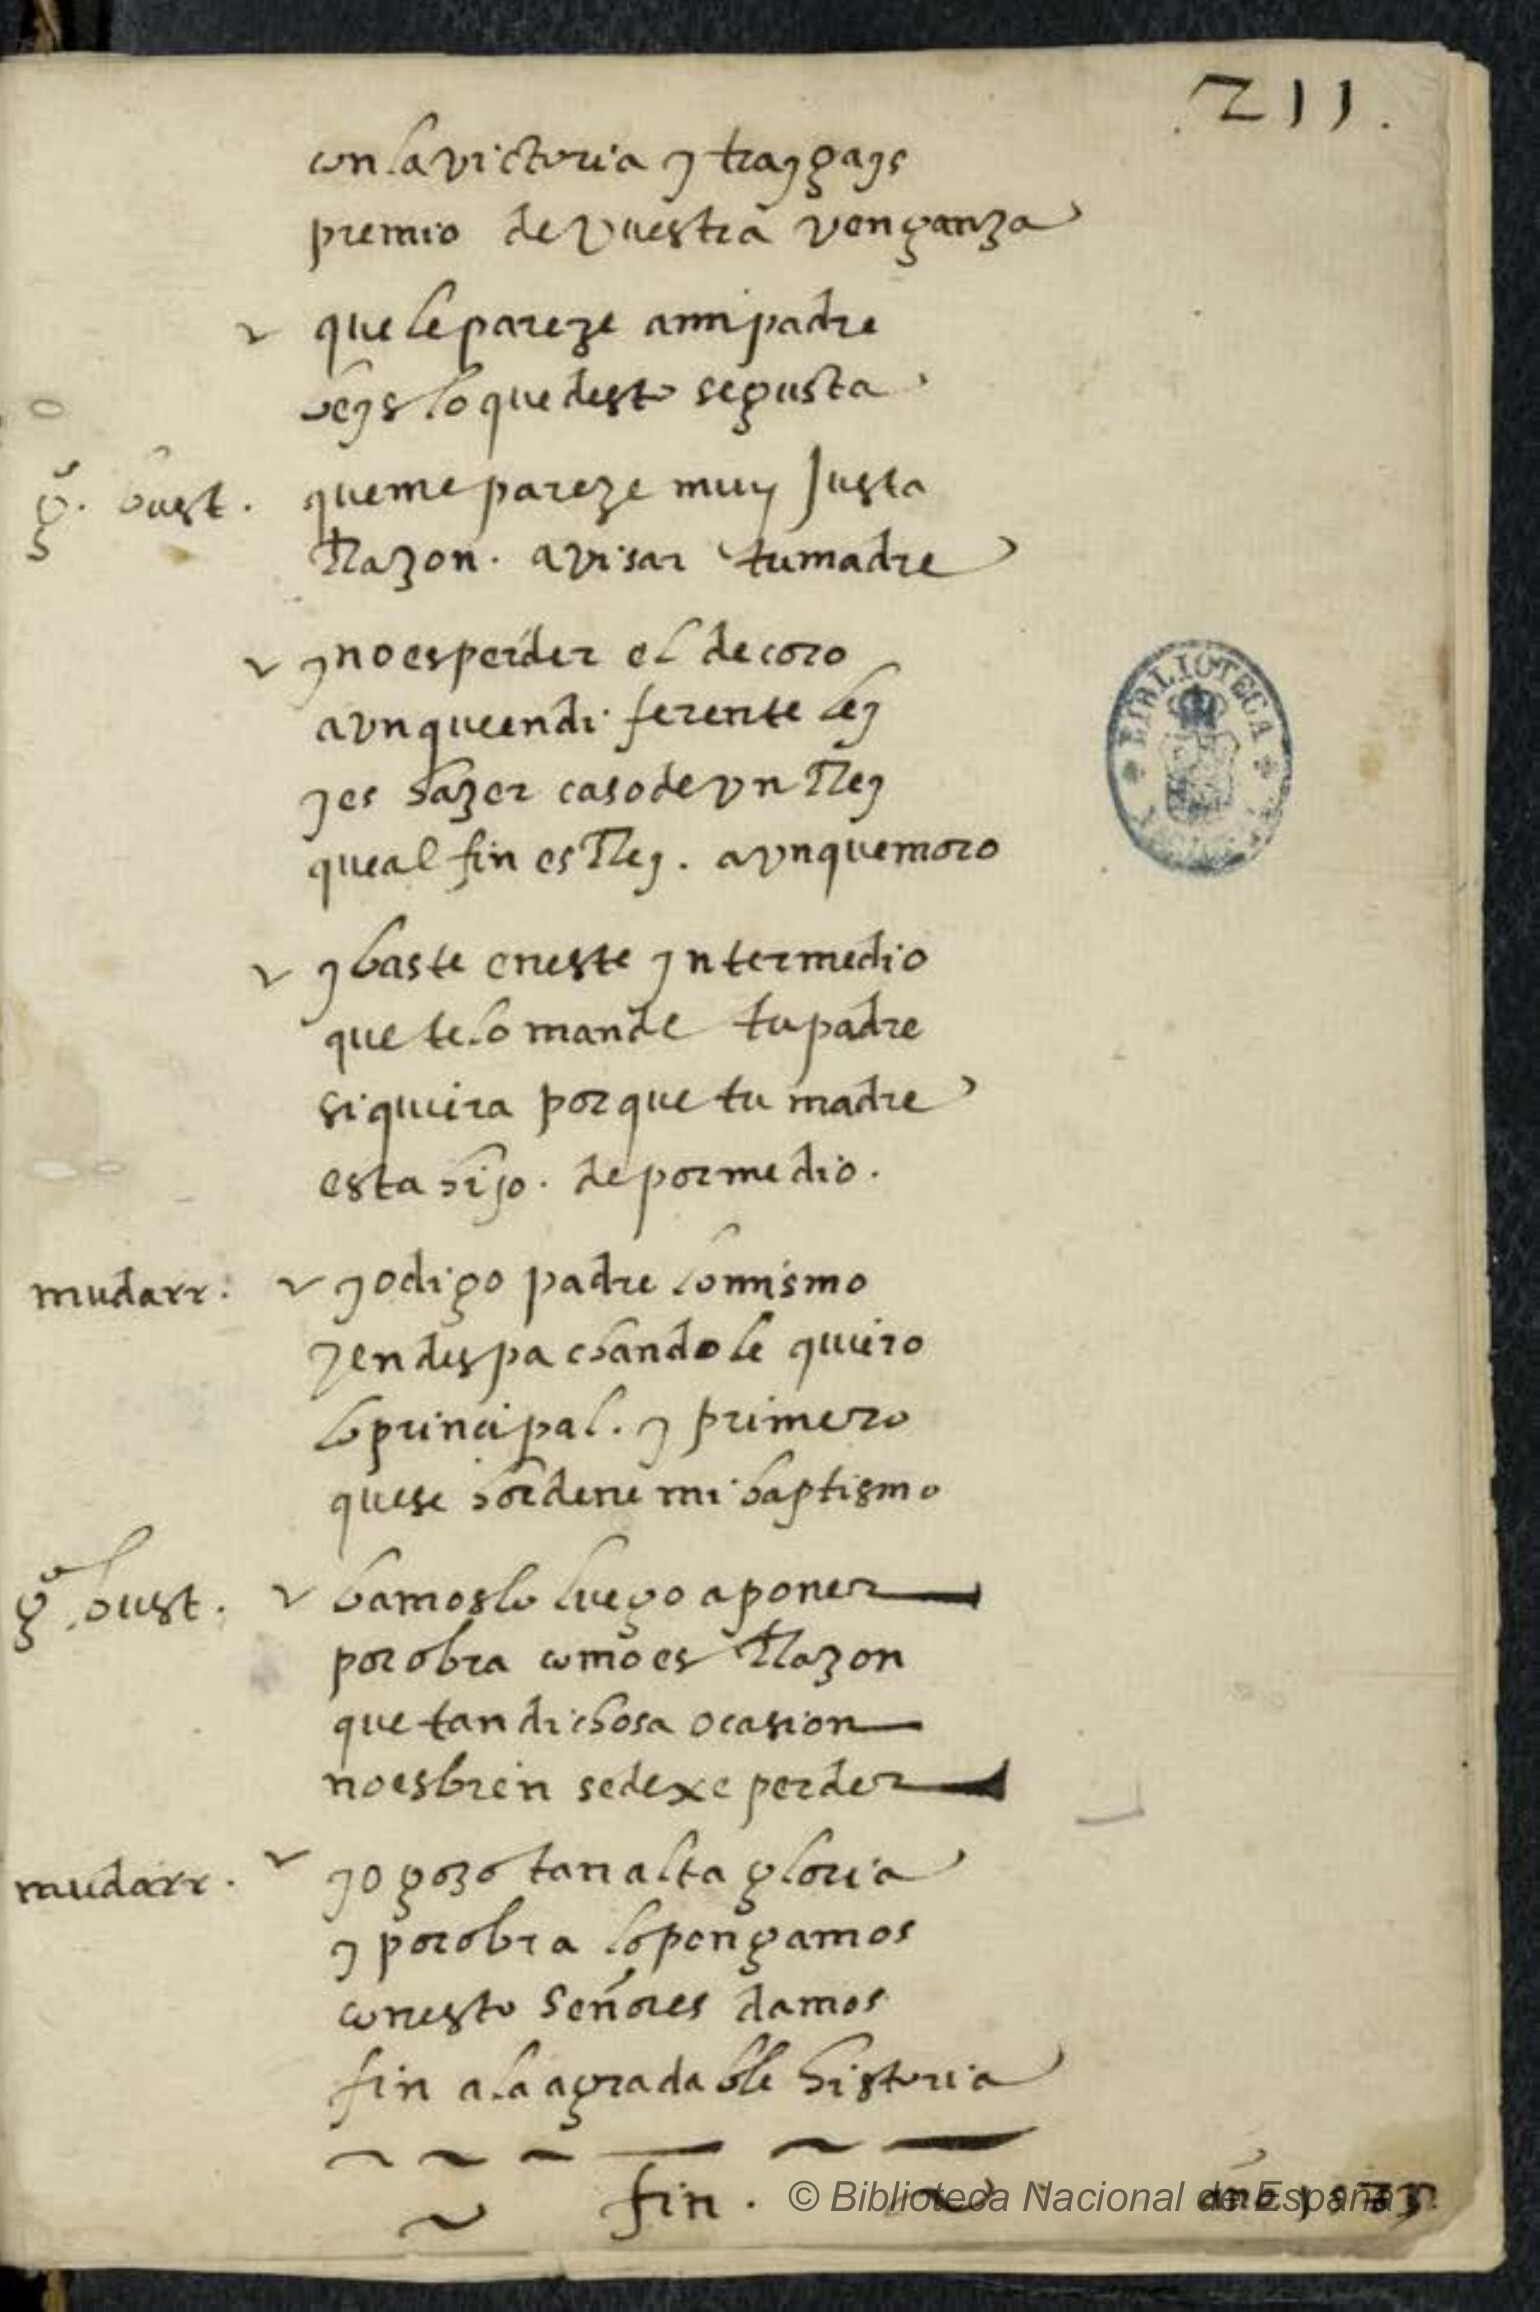 211.
con la victoria y traygays
premio de vuestra venganza
que le pareze a mi padre
veys lo que desto se gusta
gº. bust. que me pareze muy Justa
Razon. avisar tu madre
y no es perder el decoro
avnque en diferente ley
y es hazer caso de vn Rey
que al fin es Rey. avnque moro
y baste en este yntermedio
que te lo mande tu padre
siquiera porque tu madre
esta hijo. de por medio.
mudarr. yo digo padre lo mismo
y en despachandole quiero
lo principal. y primero
que se hordene mi baptismo
gº bust. bamoslo luego a poner
por obra como es Razon
que tan dichosa ocasion
no es bien se dexe perder
mudarr. yo gozo tan alta gloria
y por obra lo pongamos
con esto Señores damos
fin a la agradable historia
fin.
año
© Biblioteca Nacional de España
BIBLIOTECA